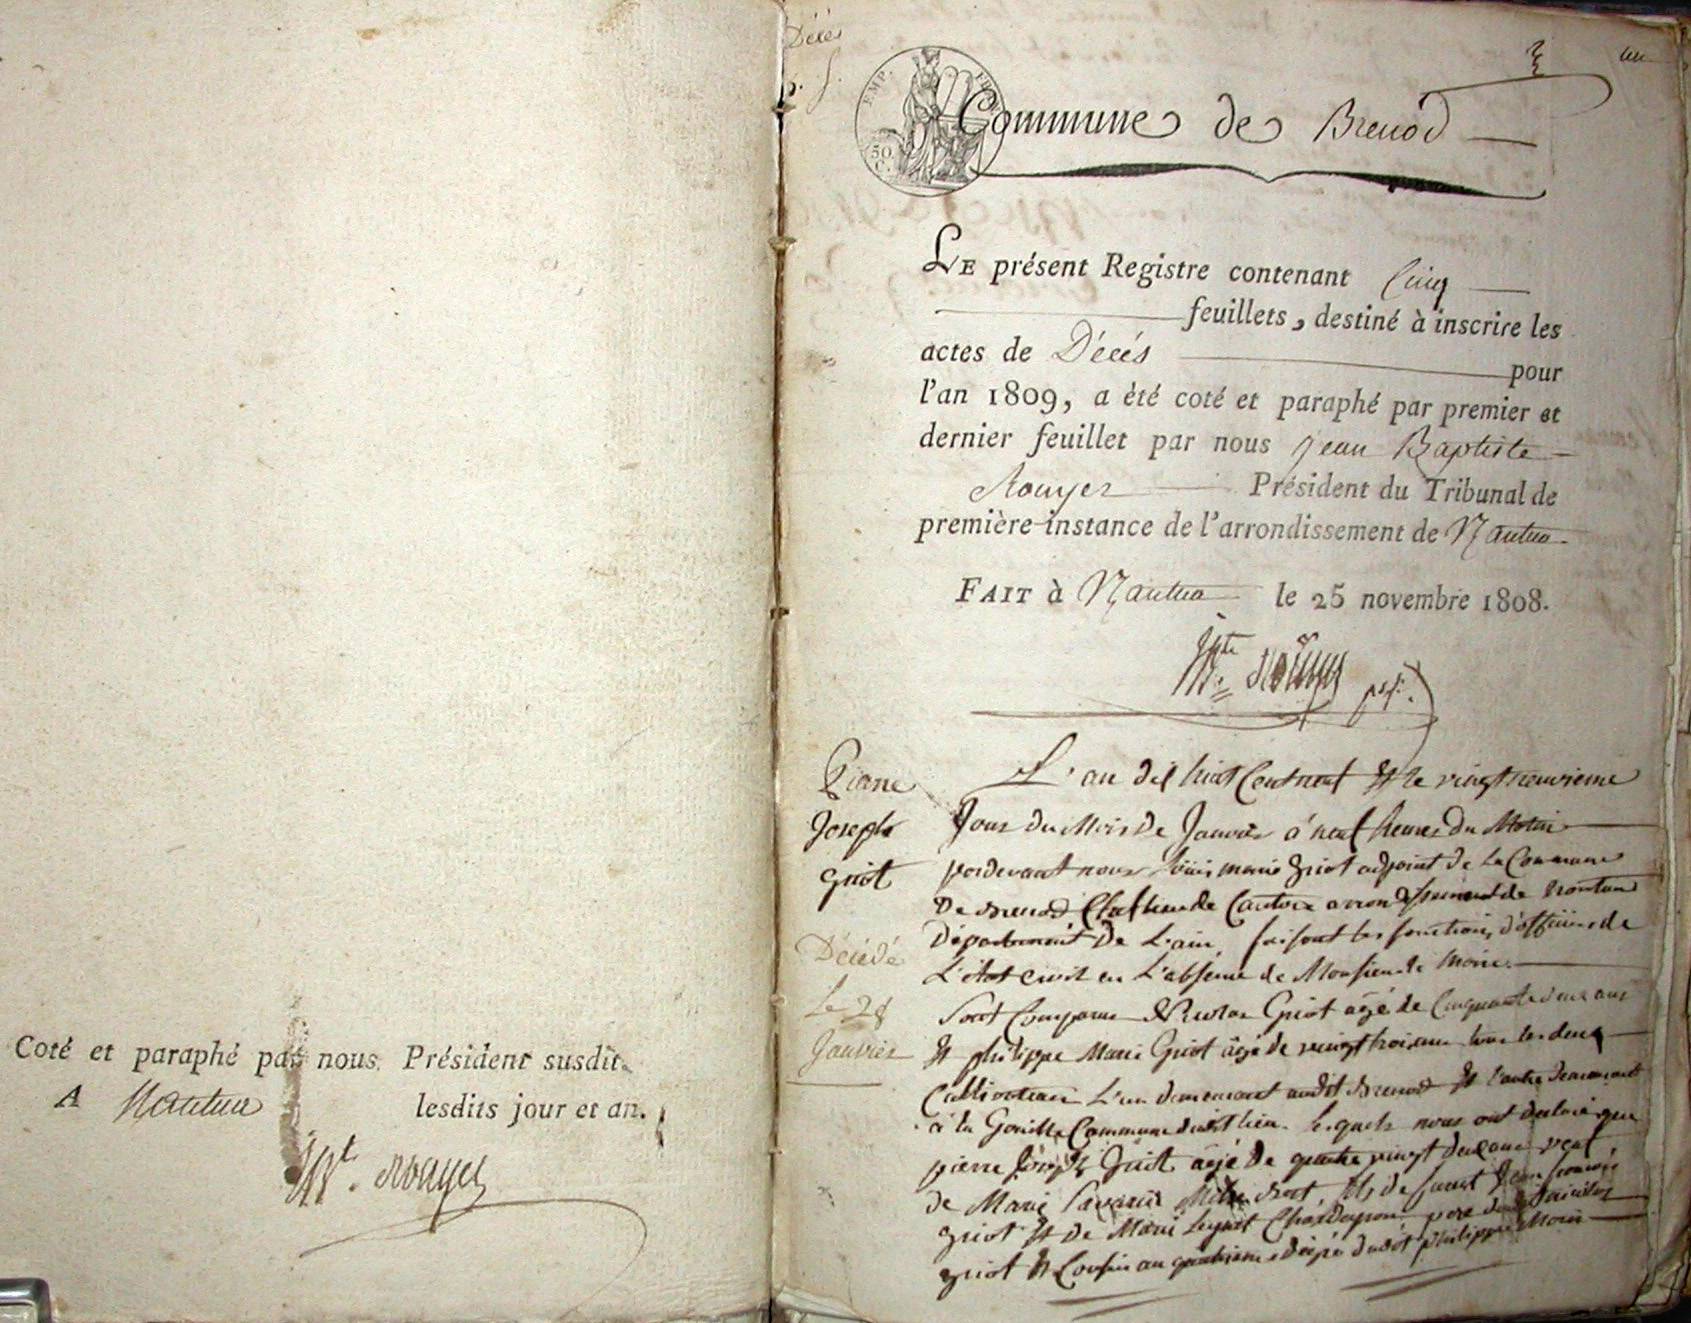 Coté et paraphé par nous, Président susdit.
A Nantua lesdits jour et an.
J Bte. Rouyer
Décés
EMP. FRAN
50 C.
un
Commune de Brenod
LE présent Registre contenant Cinq
feuillets, destiné à inscrire les
actes de Décés pour
l'an 1809, a été coté et paraphé par premier et
dernier feuillet par nous Jean Baptiste
Rouyer Président du Tribunal de
première instance de l'arrondissement de Nantua
FAIT à Nantua le 25 novembre 1808.
J Bte. Rouyer pst.
Pierre
Joseph
griot
Décédé
Le 28
Janvier
L'an dil huit Cent neuf Et le vingt neuvieme
Jour du Mois De Janvier a neuf heures Du Matin
pardevant nous Louis marie griot adjoint de La Commune
De Brenod Cheflieu de Canton arrondissement de Nantua
Département De L'ain, faisant les fonctions d'officier de
L'état civil en L'absence de Monsieur le Maire.
Sont Comparus Nicolas Griot agé de Cinquante deux ans
Et philippe Marie Griot agé de vingt trois ans tous les deux
Cultivateurs L'un demeurant audit Brenod Et l'autre demeurant
à la Commune dudit lieu. Lesquels nous ont declaré que
pierre Joseph Griot agé De quatre vingt deux ans veuf
de Marie fils de Jean francois
griot Et De Marie pere dudit Nicolas
griot Et Cousin au quatrieme dégré dudit philippe Marie